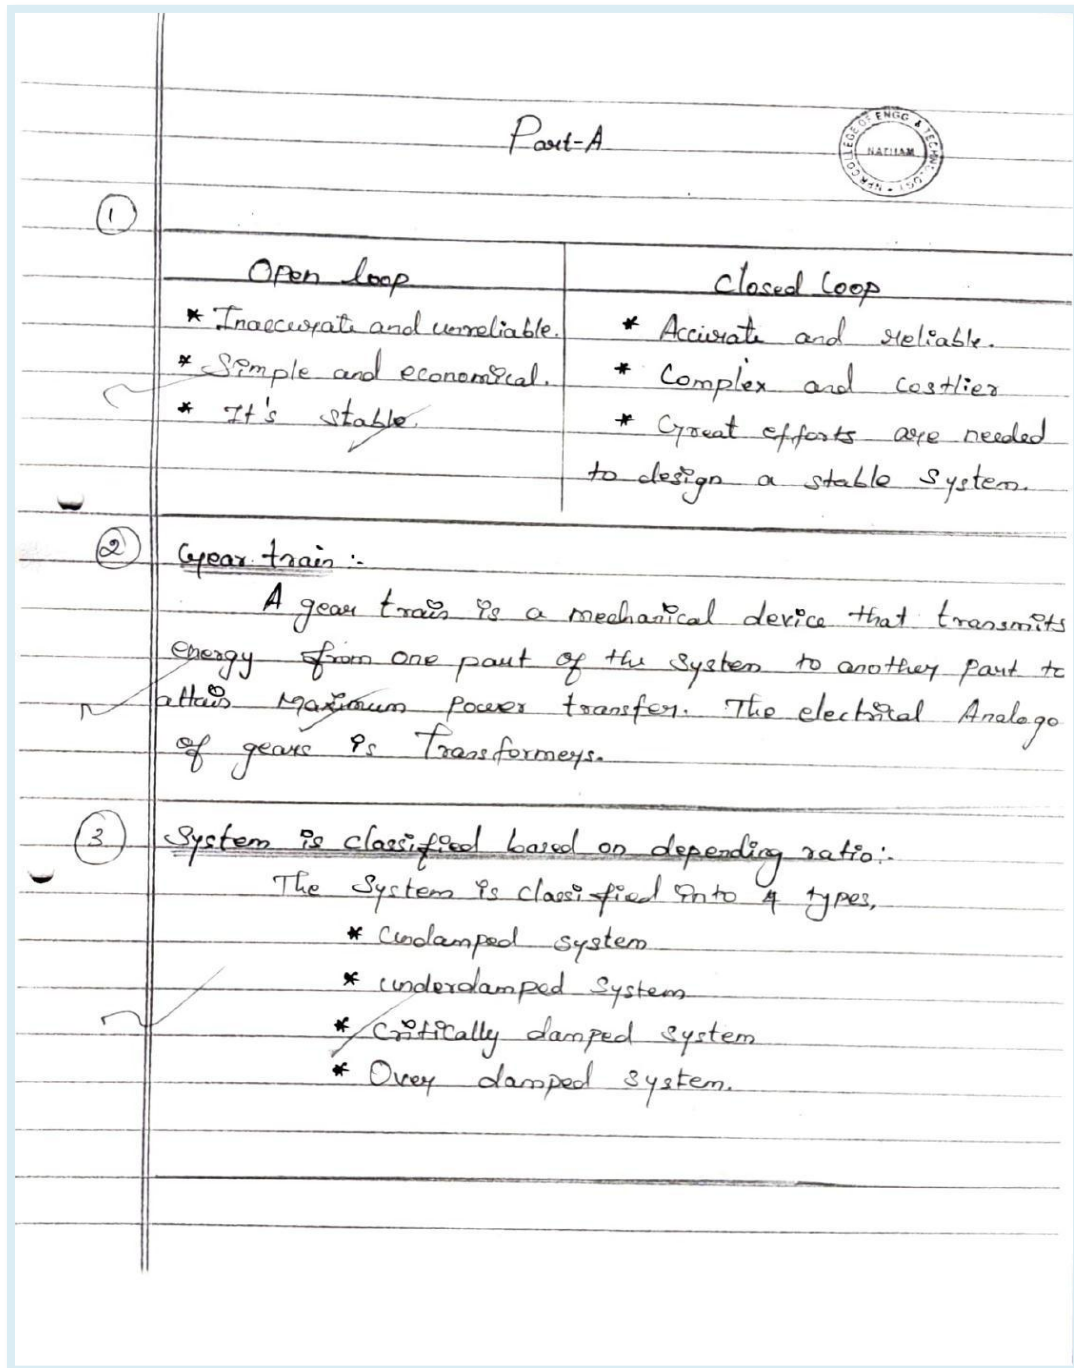 Part-A
NPR COLLEGE OF ENGG & TECHNOLOGY
NATHAM
1
Open loop
Closed loop
* Inaccurate and unreliable.
* Accurate and reliable.
* Simple and economical.
* Complex and costlier
* It's stable.
* Great efforts are needed
to design a stable system.
2 Gear train :-
A gear train is a mechanical device that transmits
energy from one part of the system to another part to
attain Maximum power transfer. The electrical Analogo
of gears is Transformers.
3 System is classified based on depending ratio:-
The System is classified into 4 types,
* Undamped system
* underdamped system
* Critically damped system
* Over damped system.